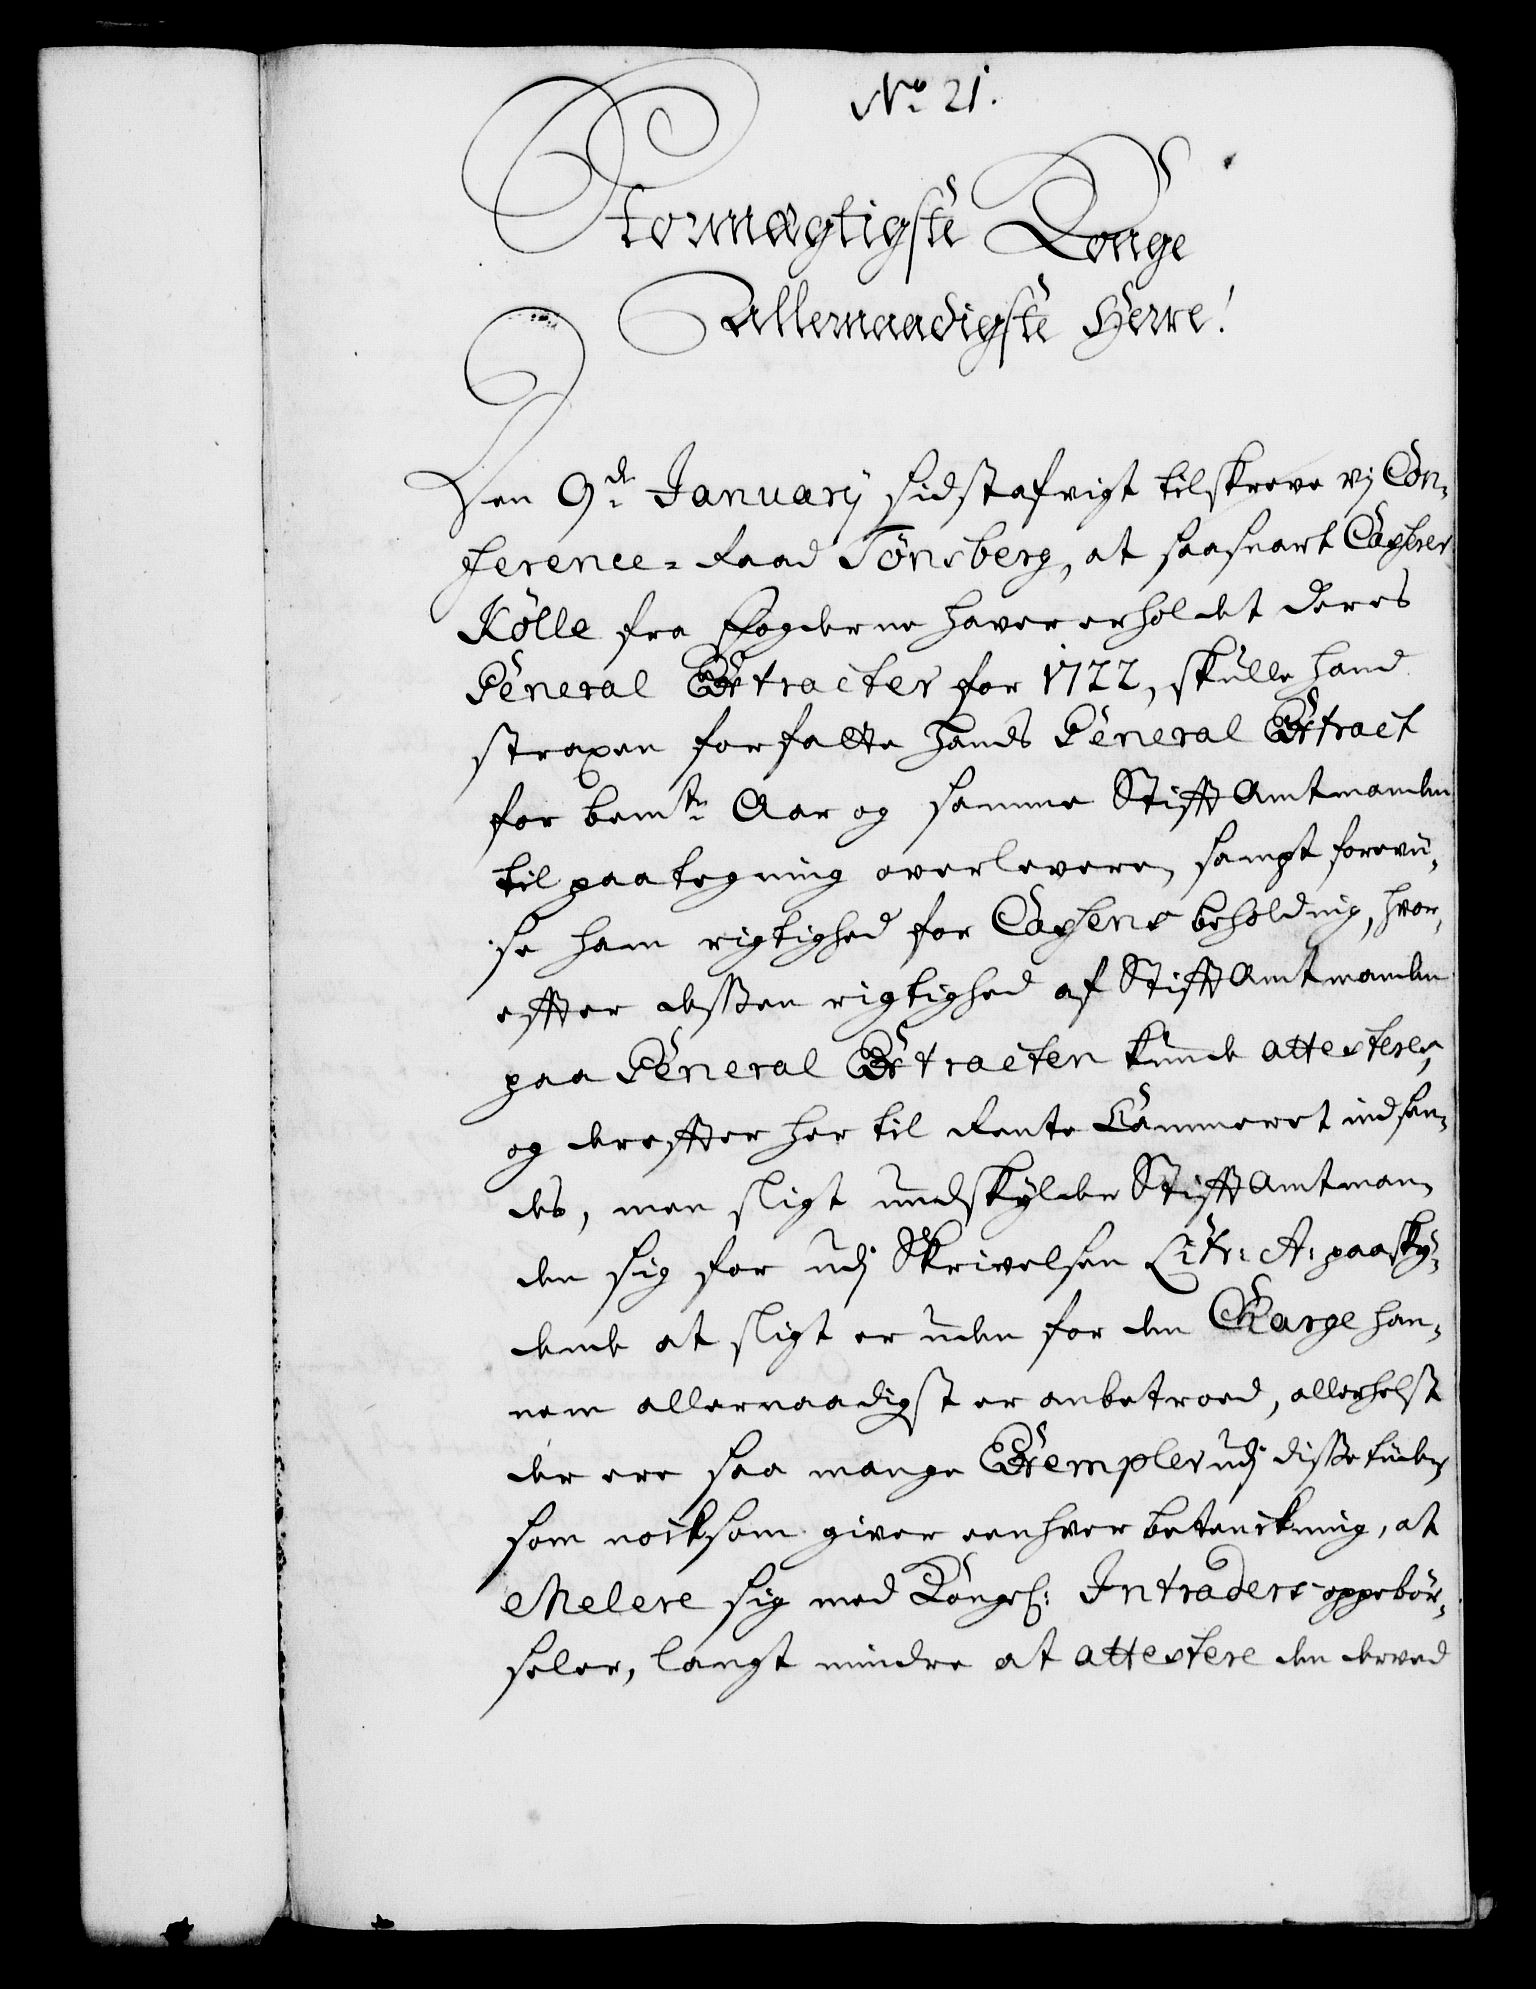 No. 21.
Stormægtigste Konge
Allernaadigste Herre!
Den 9de January sidstafvigt tilskreve vj Con-
ference-Raad Tönsberg, at saasnart Casserer
Kölle fra Fogderne haver erholdet deres
General Extracter for 1722, skulle hand
straxen forfatte hands General Extract
for bemte Aar og samme Stifft Amtmanden
til paategning overlevere, sampt forevii-
se ham rigtighed for Cassens beholdnig, hvor-
effter desßen rigtighed af Stifft Amtmanden
paa General Extracten kunde attesteres,
og dereffter her til Rente Cammeret indsen-
des, men sligt undskylder Stifft Amtman-
den sig for udj Skrivelsen Litr: A: paasky-
dende at sligt er uden for den Charge han-
nem allernaadigst er anbetroed, allerhelst
der ere saa mange Exempler udj disse tiider
som nocksom giver eenhver betenckning, at
Melere sig med Kongel: Intraders oppebör-
seler, langt mindre at attestere den derved